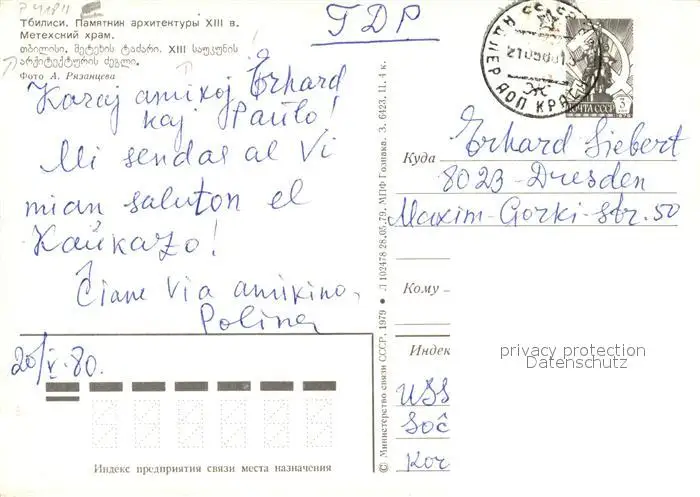 Тбилиси. Памятник архитектуры XIII в.
Метехский храм.
თბილისი. მეტეხის ტაძარი. XIII საუკუნის
არქიტექტურის ძეგლი.
Фото А. Рязанцева
GDP
Karaj amikoj Erhard
kaj Paulo!
Mi sendas al Vi
mian saluton el
Kaŭkazo!
Ĉiam via amikino,
Polina
20/V.80.
Индекс предприятия связи места назначения
© Министерство связи СССР, 1979 • Л 102478 28.05.79. МПФ Гознака. З. 6423. Ц. 4 к.
СССР
ПОЧТА СССР 3
Куда
Erhard Siebert
8023-Dresden
Maxim-Gorki-Str. 50
Кому
Индек
privacy protection
Datenschutz
USS
Soĉ
Kor